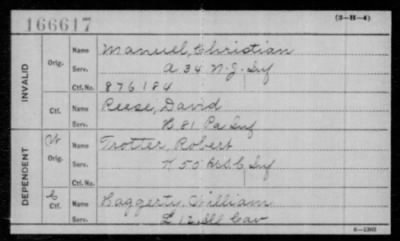 166617
(3-H-4)
INVALID
Orig.
Name Manuel, Christian
Serv. A 34 N.J. Inf
Ctf. No. 876184
Ctf.
Name Reese, David
Serv. H 81 Pa Inf
DEPENDENT
W
Orig.
Name Trotter, Robert
Serv. K 50 U.S.C. Inf
Ctf. No.
C
Ctf.
Name Haggerty, William
Serv. L 12 Ill Cav